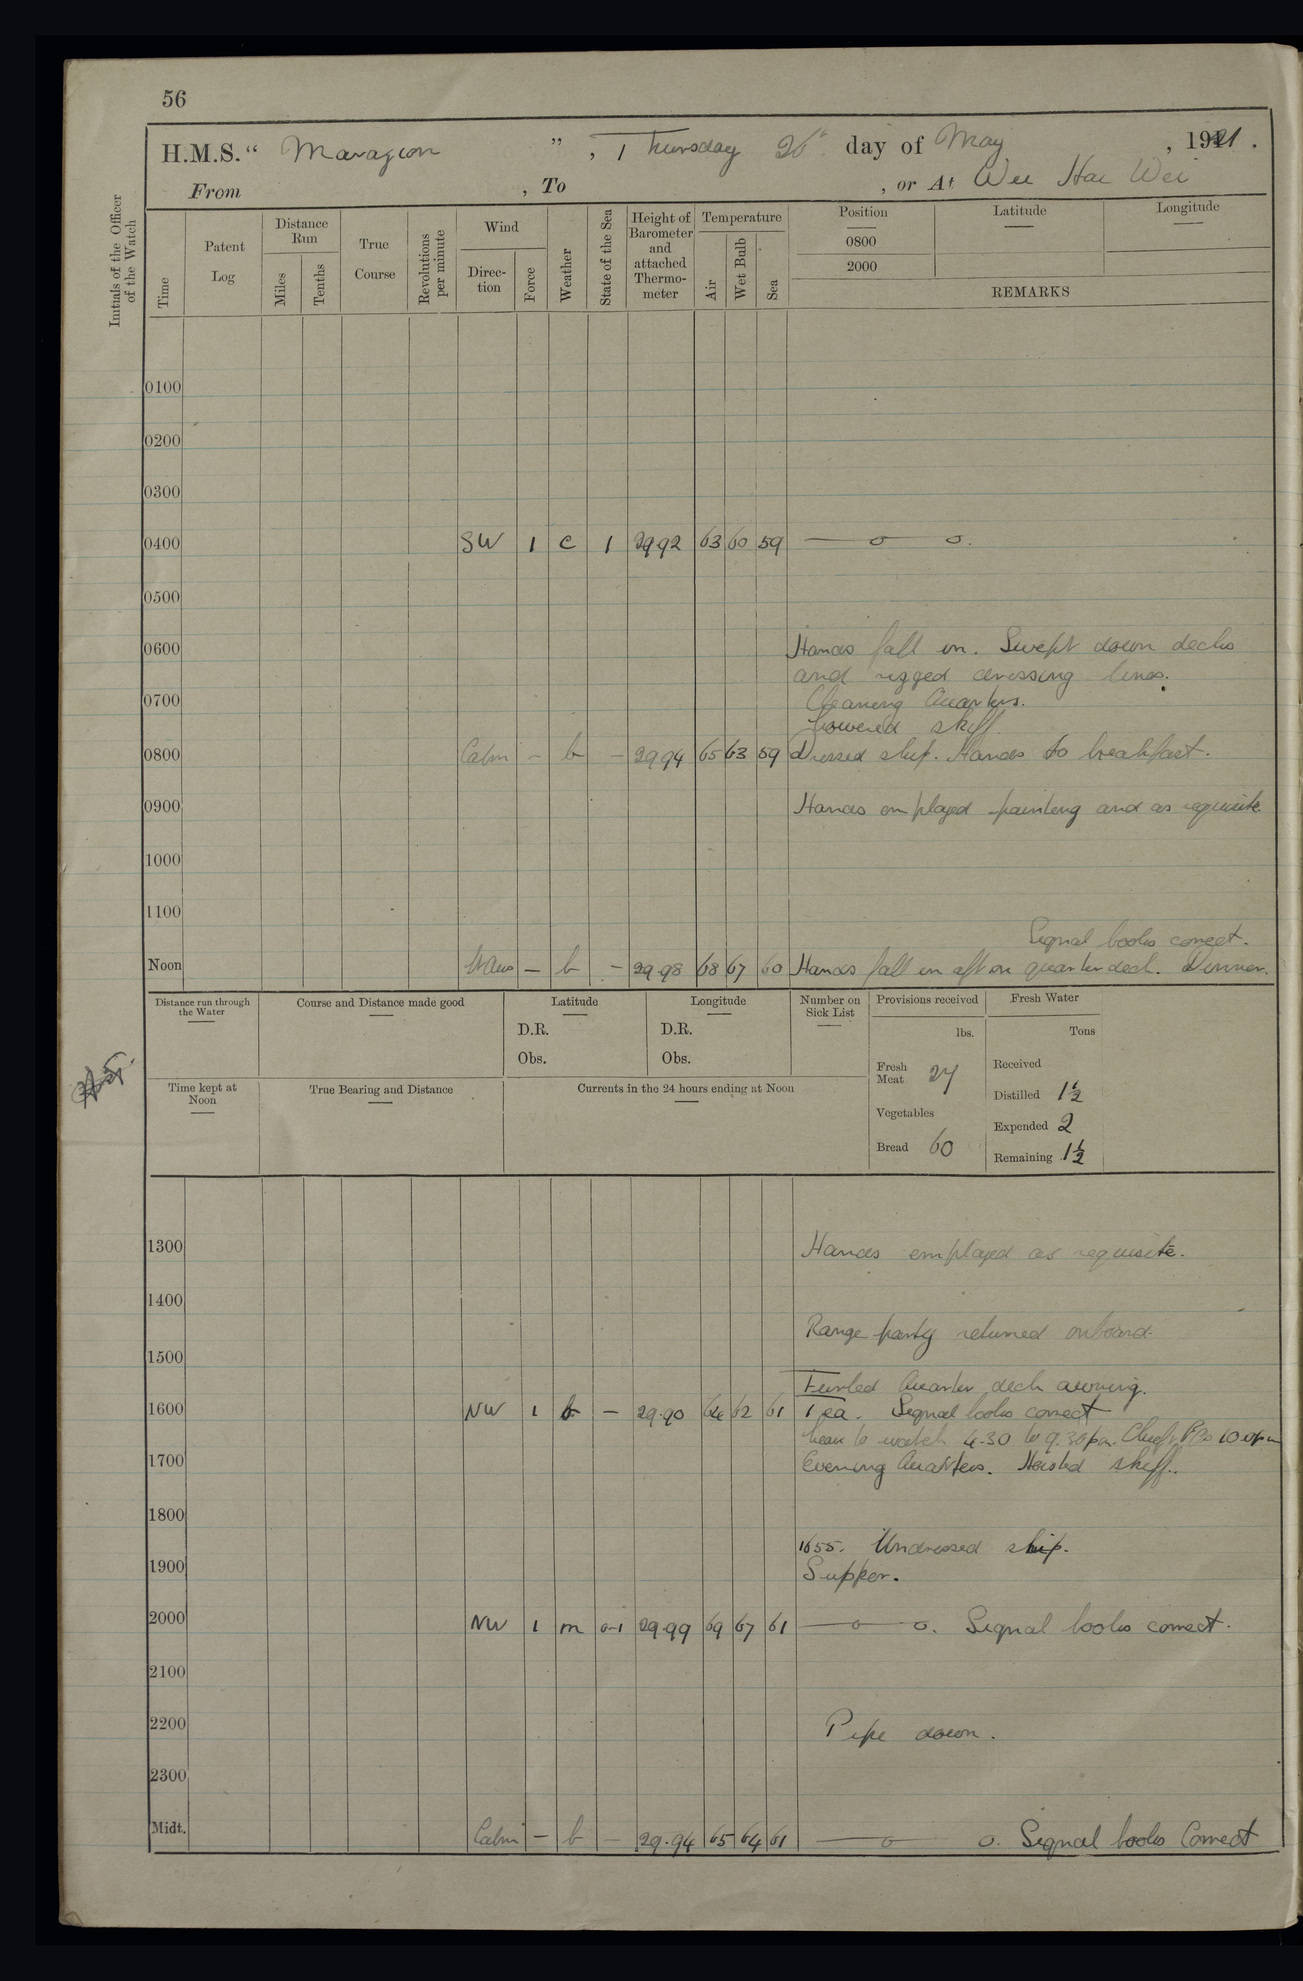 56
H.M.S. " Marazion ", Thursday 26th day of May, 1921.
From , To , or At Wei Hai Wei
Initials of the Officer of the Watch
Time
Patent Log
Distance Run
Miles
Tenths
True Course
Revolutions per minute
Wind
Direc- tion
Force
Weather
State of the Sea
Height of Barometer and attached Thermo- meter
Temperature
Air
Wet Bulb
Sea
Position
0800
2000
Latitude
Longitude
REMARKS
0100
0200
0300
0400 SW 1 c 1 29.92 63 60 59 —o— o.
0500
0600 Hands fall in. Swept down decks
and rigged dressing lines.
0700 Cleaning Quarters.
Lowered skiff.
0800 Calm - b - 29.94 65 63 59 Dressed ship. Hands to breakfast.
0900 Hands employed painting and as requisite
1000
1100
Signal books correct.
Noon - b - 29.98 68 67 60 Hands fall in aft on quarter deck. Dinner.
Distance run through the Water
Course and Distance made good
Latitude
D.R.
Obs.
Longitude
D.R.
Obs.
Number on Sick List
Provisions received
lbs.
Fresh Meat 27
Vegetables
Bread 60
Fresh Water
Tons
Received
Distilled 1½
Expended 2
Remaining 1½
Time kept at Noon
True Bearing and Distance
Currents in the 24 hours ending at Noon
1300 Hands employed as requisite.
1400
Range party returned onboard.
1500
Furled Quarter deck awning.
1600 NW 1 b - 29.90 64 62 61 Tea. Signal books correct
Leave to watch 4.30 to 9.30pm. Chief & P.Os 10.0pm
1700 Evening Quarters. Hoisted skiff.
1800
1855. Undressed ship.
1900 Supper.
2000 NW 1 m 0-1 29.99 69 67 61 —o— o. Signal books correct.
2100
2200 Pipe down.
2300
Midt. Calm - b - 29.94 65 64 61 —o— o. Signal books Correct